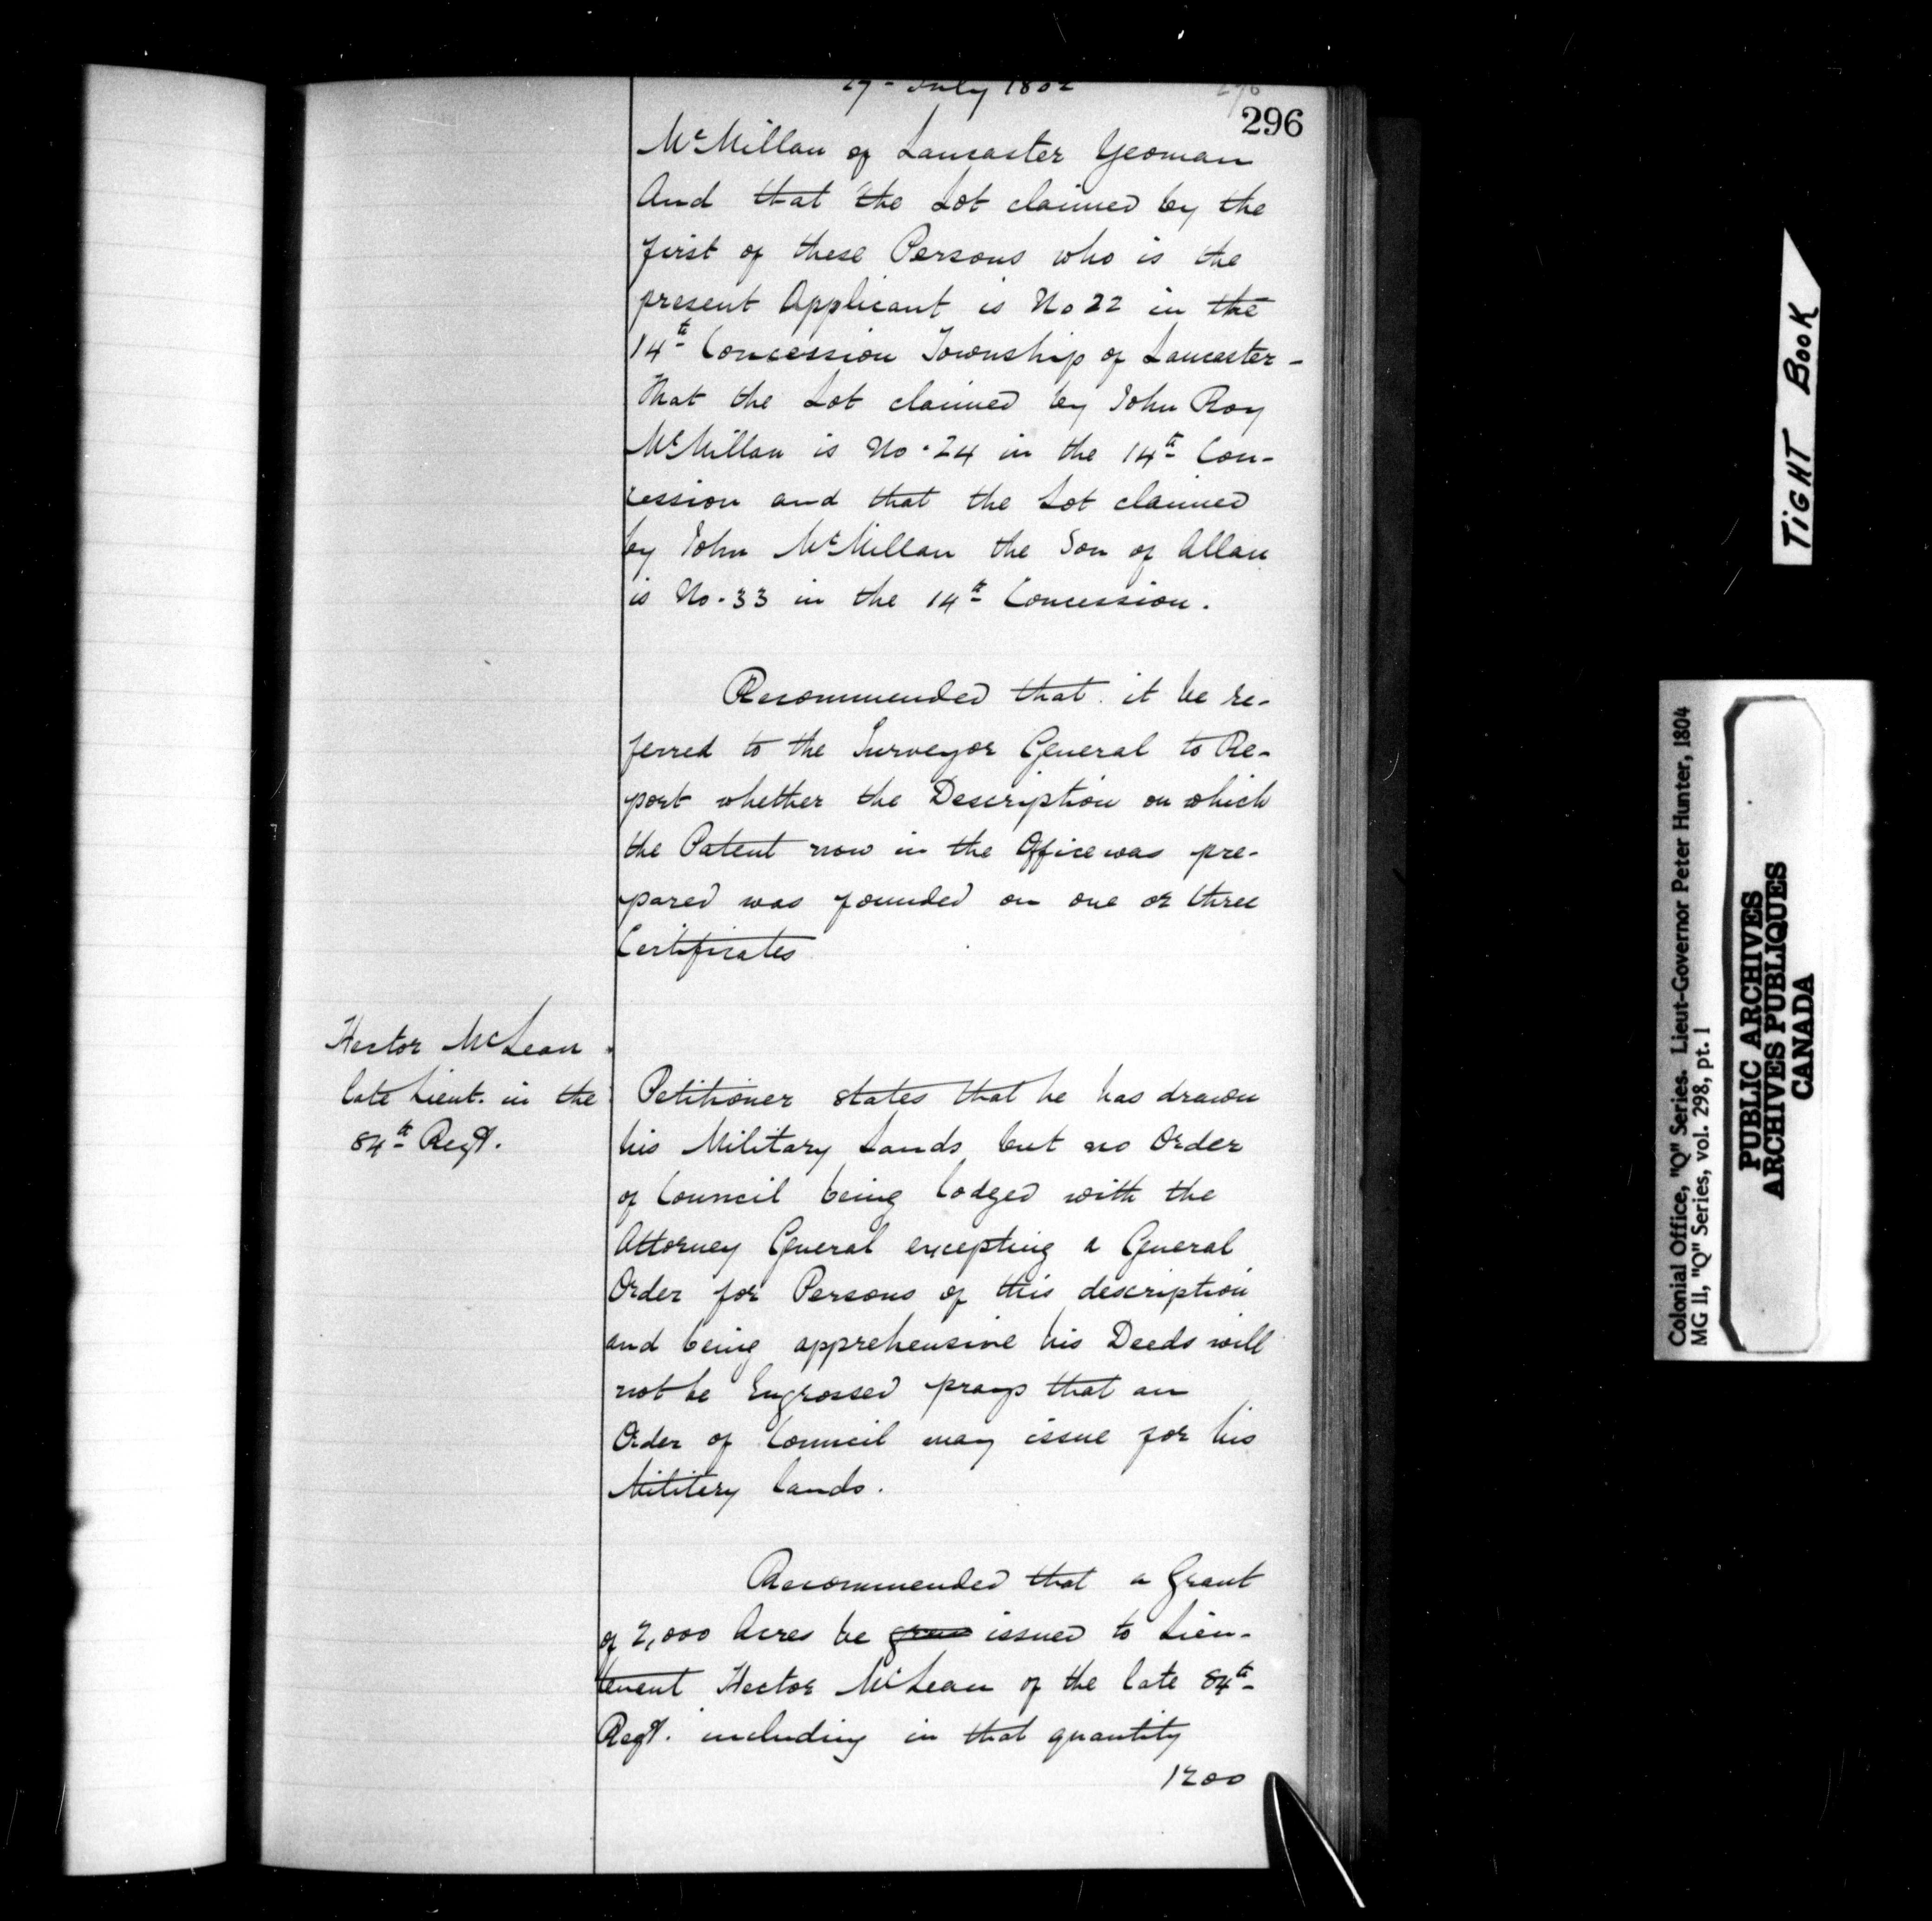 19 - July 1802
296
McMillan of Lancaster Yeoman
And that the Lot claimed by the
first of these Persons who is the
present Applicant is No 22 in the
14th Concession Township of Lancaster -
That the Lot claimed by John Roy
McMillan is No. 24 in the 14th Con-
cession and that the Lot claimed
by John McMillan the Son of Allan
is No. 33 in the 14th Concession.
Recommended that it be re-
ferred to the Surveyor General to Re-
port whether the Description on which
the Patent now in the Office was pre-
pared was founded on one or three
Certificates
Hector McLean
late Lieut. in the
84th Regt.
Petitioner states that he has drawn
his Military Lands but no Order
of Council being lodged with the
Attorney General excepting a General
Order for Persons of this description
and being apprehensive his Deeds will
not be Engrossed prays that an
Order of Council may issue for his
Military Lands.
Recommended that a Grant
of 2,000 Acres be issued to Lieu-
tenent Hector McLean of the late 84th
Regt. including in that quantity
1200
TIGHT BOOK
Colonial Office, "Q" Series. Lieut-Governor Peter Hunter, 1804
MG 11, "Q" Series, vol. 298, pt. 1
PUBLIC ARCHIVES
ARCHIVES PUBLIQUES
CANADA